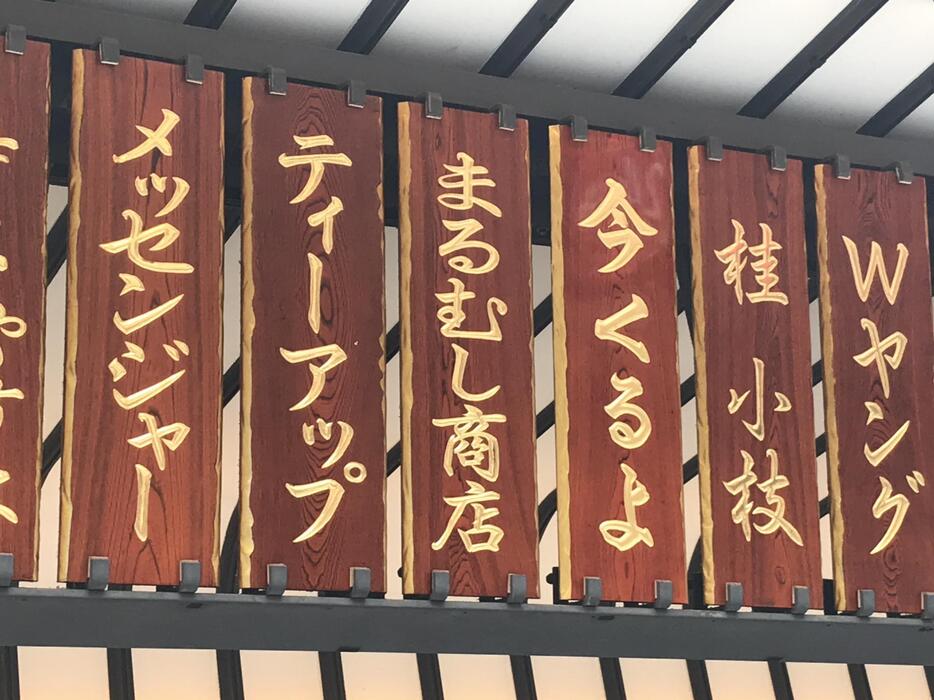 Wヤング
桂小枝
今くるよ
まるむし商店
ティーアップ
メッセンジャー